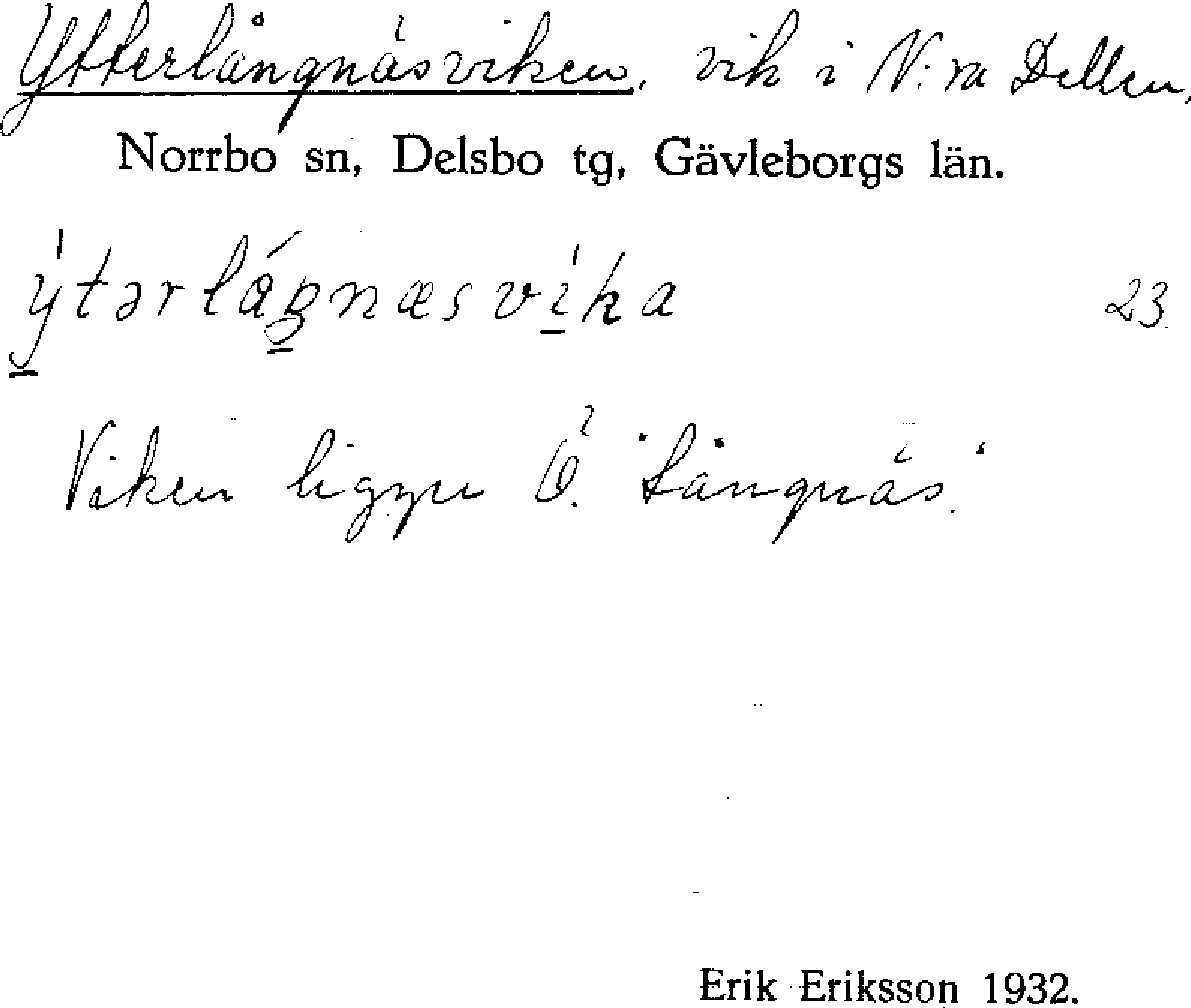 Ytterlångnäsviken, vik i N:ra Dellen,
Norrbo sn, Delsbo tg, Gävleborgs län.
23.
Viken ligger Ö. "Långnäs".
Erik Eriksson 1932.